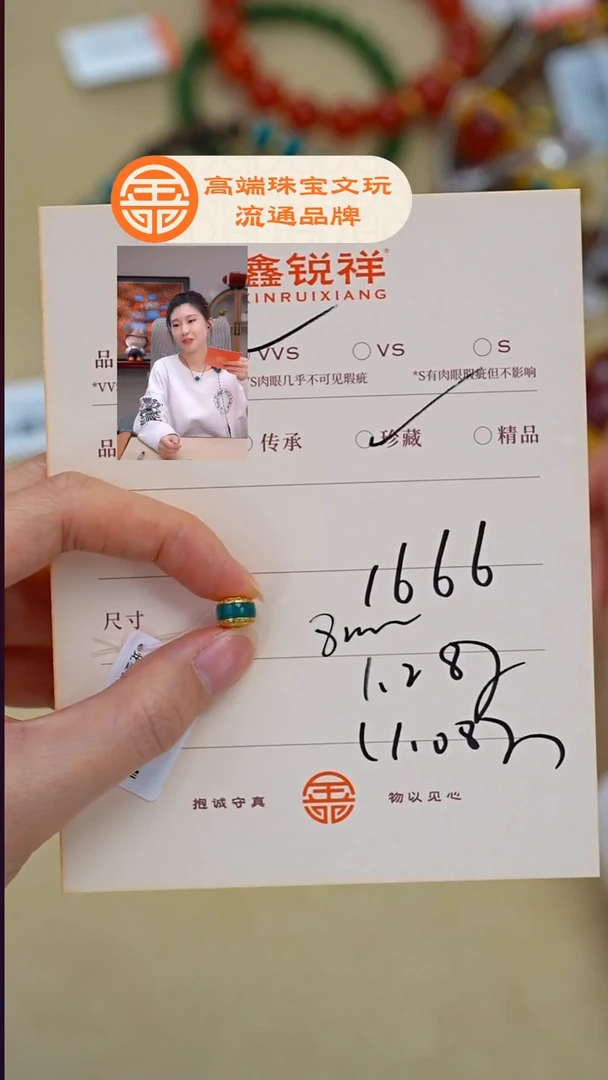 高端珠宝文玩
流通品牌
鑫锐祥
XINRUIXIANG
品 VVS VS S
*VV *S肉眼几乎不可见瑕疵 *S有肉眼瑕疵但不影响
品 传承 珍藏 精品
1666
尺寸 8mm
1.28g
抱诚守真 物以见心